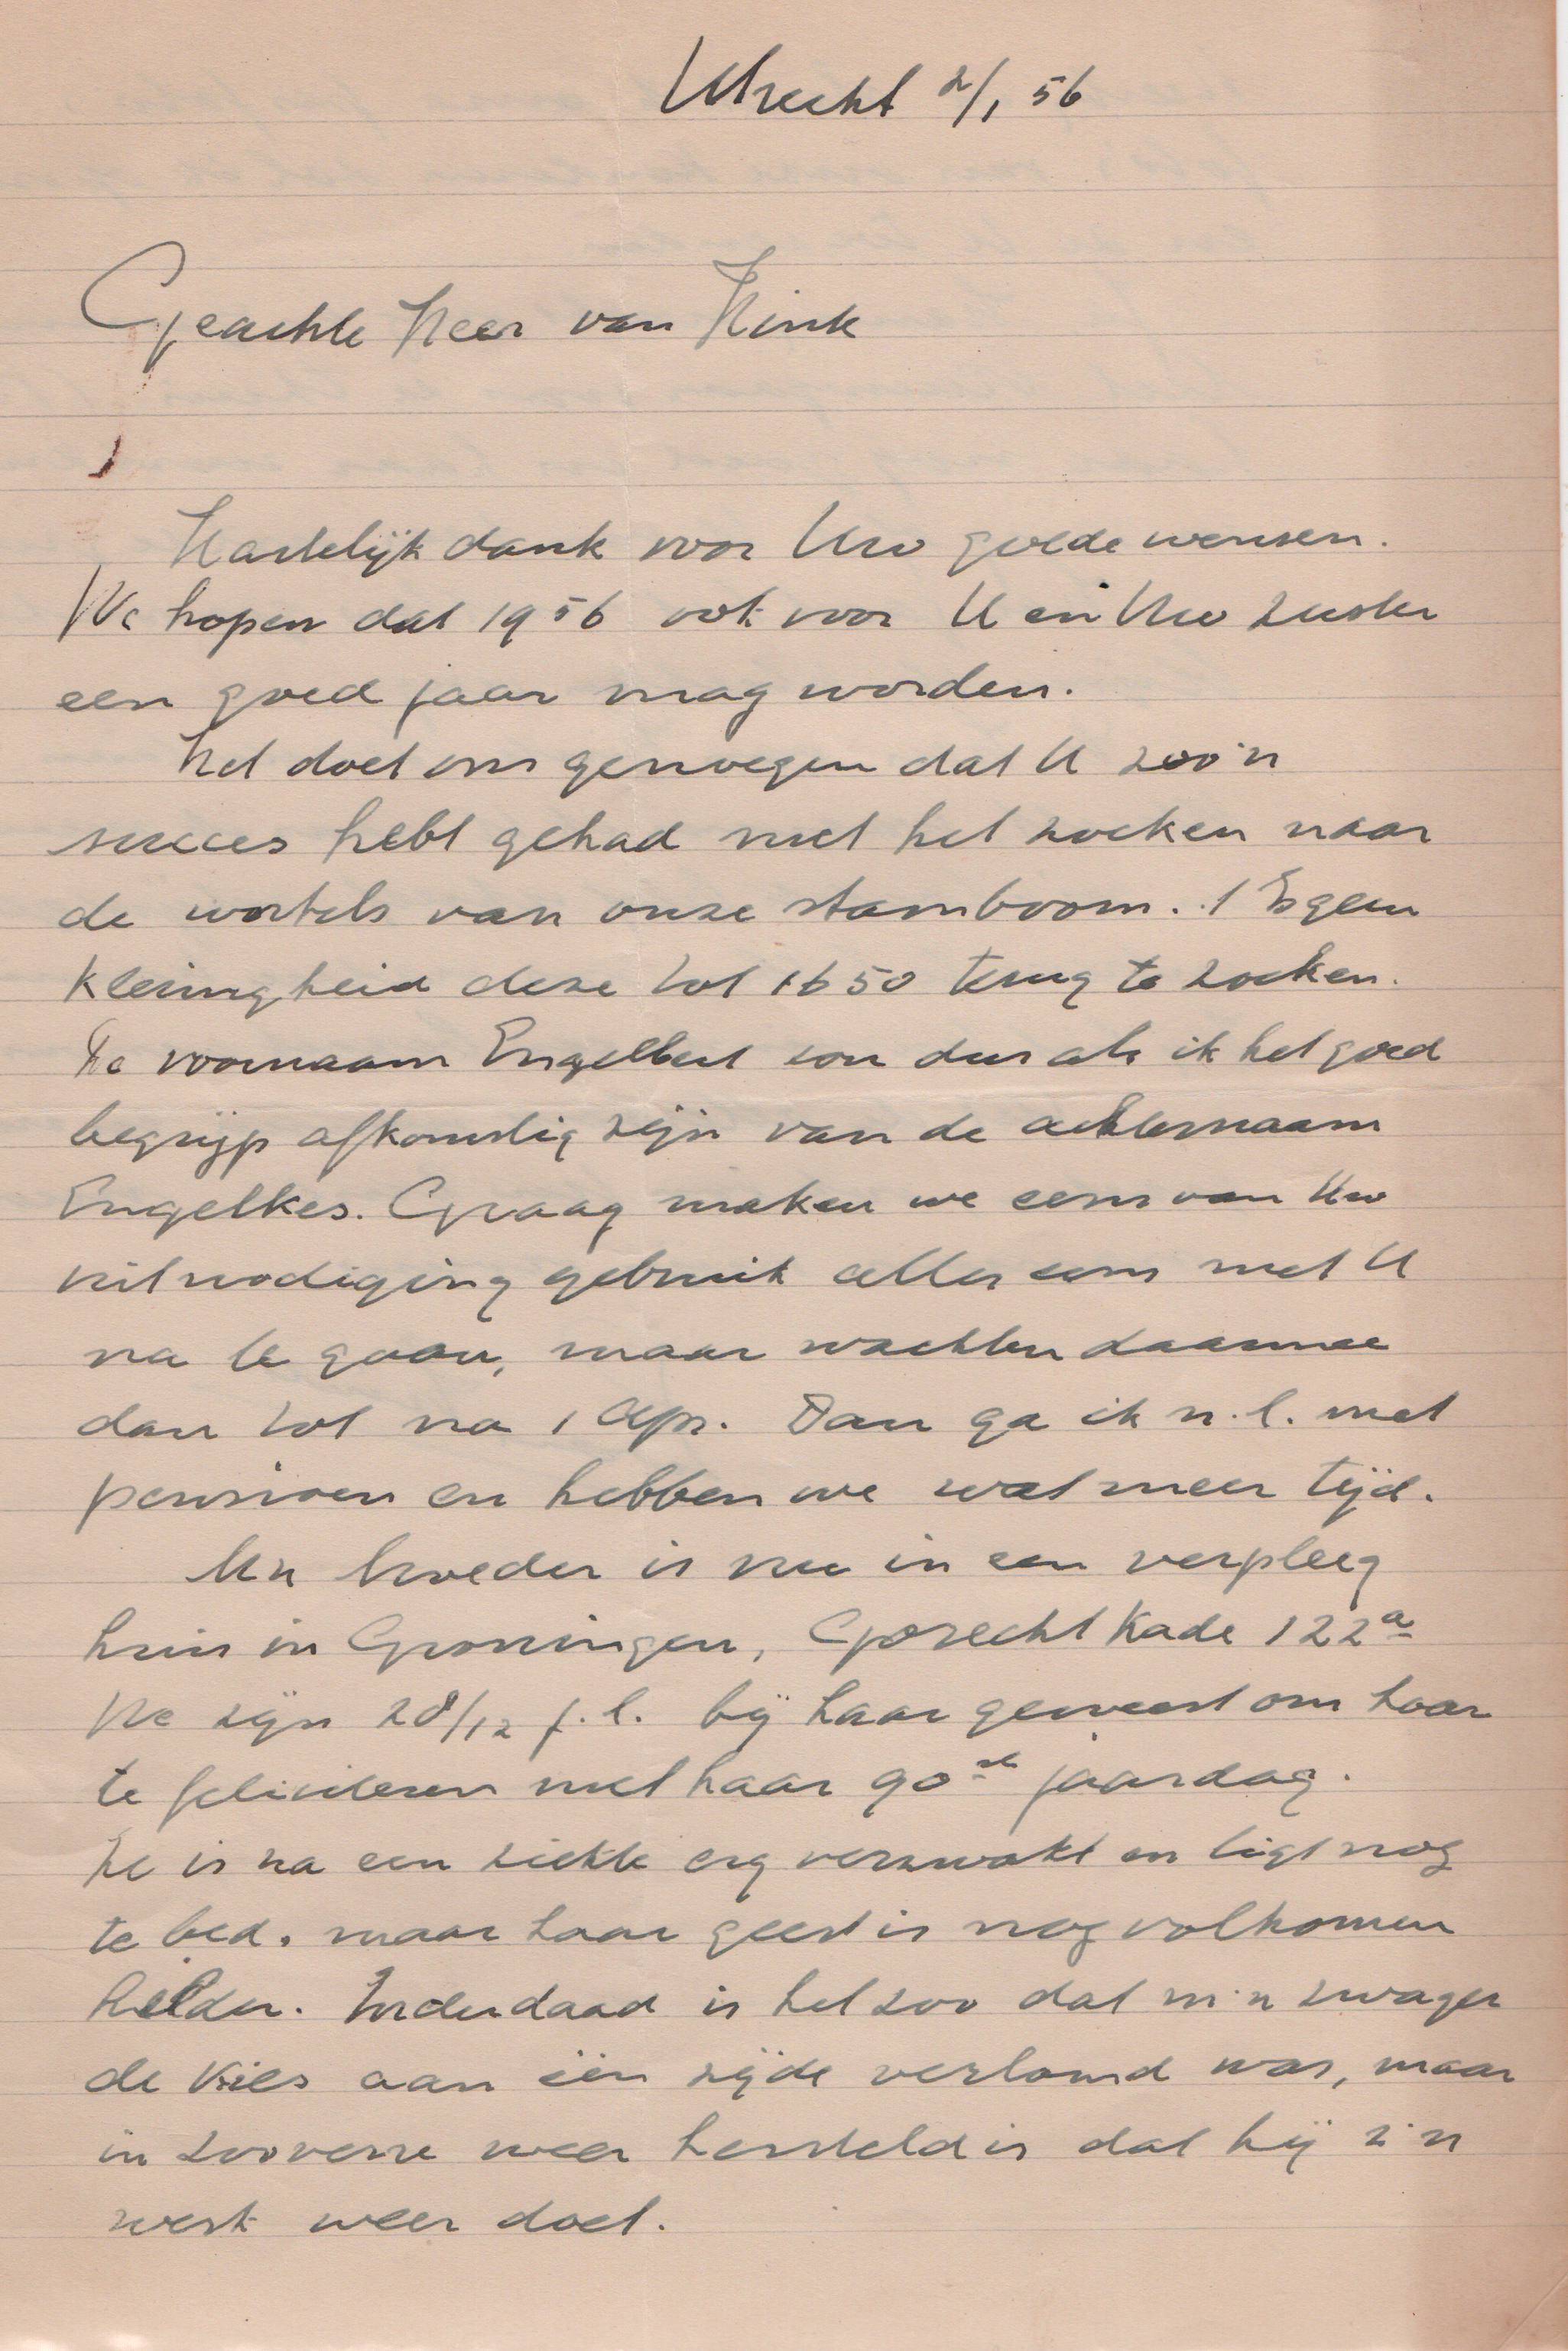 Utrecht 2/1 56
Geachte Heer van Hink
Hartelijk dank voor Uw goede wensen.
We hopen dat 1956 ook voor U en Uw zuster
een goed jaar mag worden.
Het doet ons genoegen dat U zoo'n
succes hebt gehad met het zoeken naar
de wortels van onze stamboom. 't Is geen
kleinigheid deze tot 1650 terug te zoeken.
De voornaam Engelbert zou dus als ik het goed
begrijp afkomstig zijn van de achternaam
Engelkes. Graag maken we eens van Uw
uitnodiging gebruik alles eens met U
na te gaan, maar wachten daarmee
dan tot na 1 Apr. Dan ga ik n.l. met
pensioen en hebben we wat meer tijd.
M'n moeder is nu in een verpleeg
huis in Groningen, Gorecht Kade 122a
We zijn 28/12 j.l. bij haar geweest om haar
te feliciteren met haar 90ste jaardag.
Ze is na een ziekte erg verzwakt en ligt nog
te bed. maar haar geest is nog volkomen
helder. Inderdaad is het zoo dat m'n zwager
de Vries aan één zijde verlamd was, maar
in zooverre weer hersteld is dat hij z'n
werk weer doet.